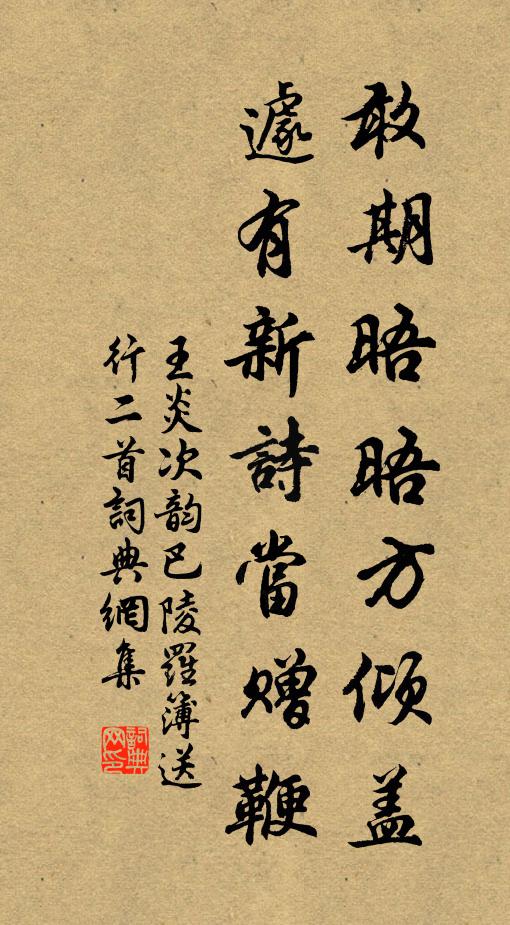 敢期晤晤方倾盖
遽有新詩當赠鞭
王炎次韵巴陵羅簿送
行二首詞典網集
詞典
网印